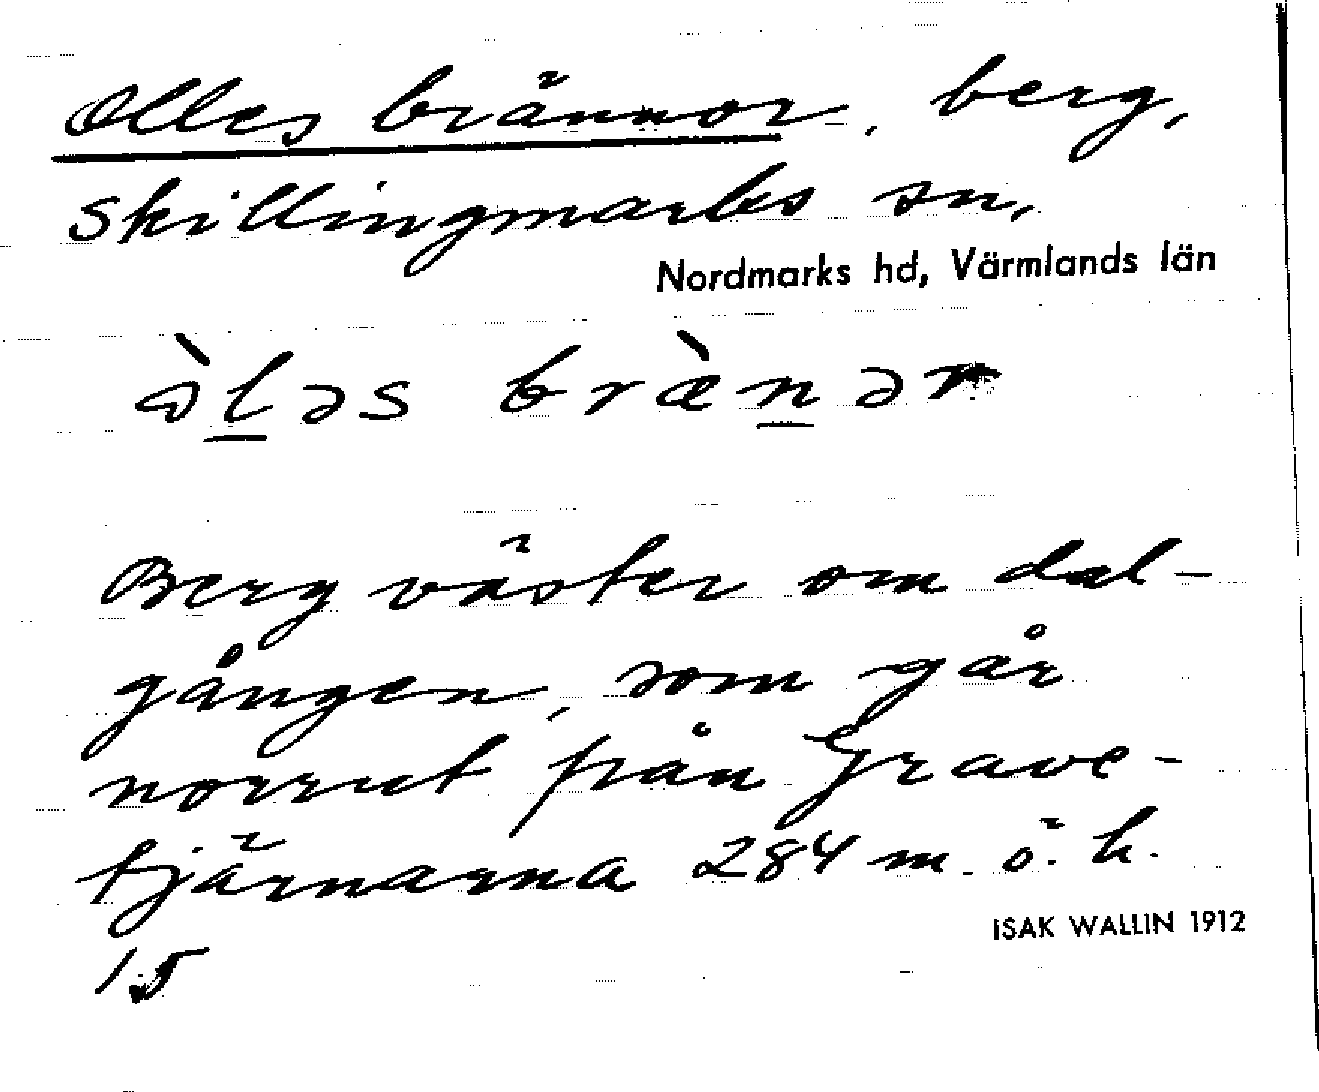 Olles brännor, berg,
Skillingmarks sn,
Nordmarks hd, Värmlands län
òl̲əs bræ̀n̲ər
Berg väster om dal-
gången, som går
norrut från Grave-
tjärnarna 284 m. ö. h.
ISAK WALLIN 1912
15